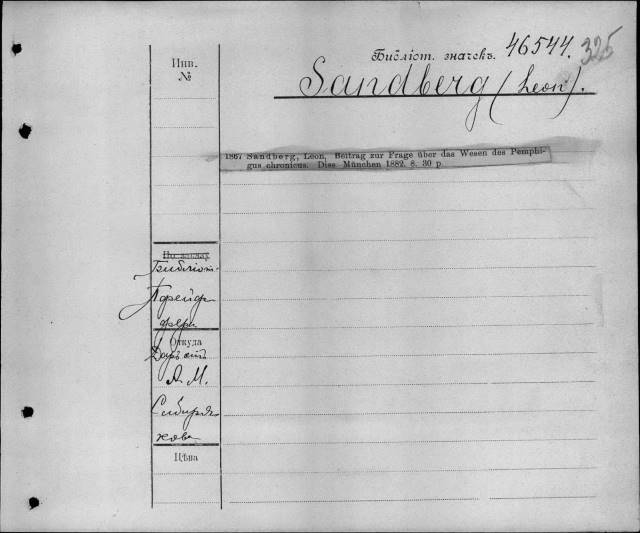 Библіот. значекъ. 46544. 325
Инв.
№
Sandberg (Leon).
1867 Sandberg, Leon, Beitrag zur Frage über das Wesen des Pemphi-
gus chronicus. Diss München 1882. 8. 30 p.
Библіот.
Пфейф
фера
Откуда
Даръ отъ
А. М.
Сибиря
кова
Цѣна